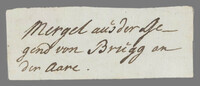 Mergel aus der Ge-
gend von Brugg an
der Aare.